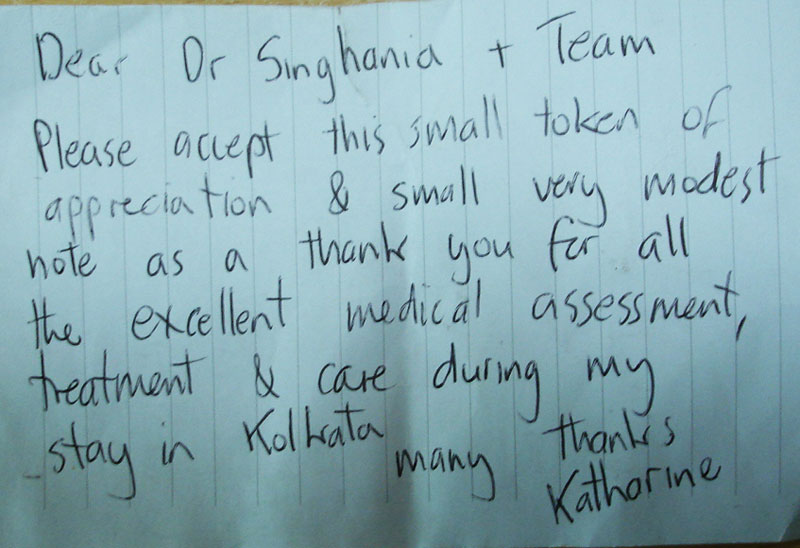 Dear Dr Singhania + Team
Please accept this small token of
appreciation & small very modest
note as a thank you for all
the excellent medical assessment,
treatment & care during my
stay in Kolkata many thanks
Katharine